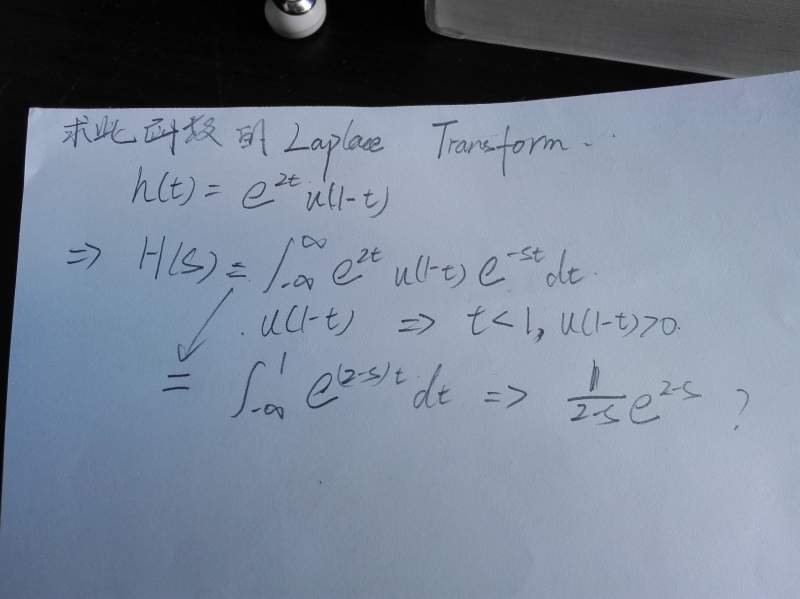 求此函数的 Laplace Transform.
h(t) = e^{2t} u(1-t)
=> H(s) = ∫_{-∞}^{∞} e^{2t} u(1-t) e^{-st} dt.
u(1-t) => t<1, u(1-t)>0.
= ∫_{-∞}^{1} e^{(2-s)t} dt => \frac{1}{2-s} e^{2-s} ?